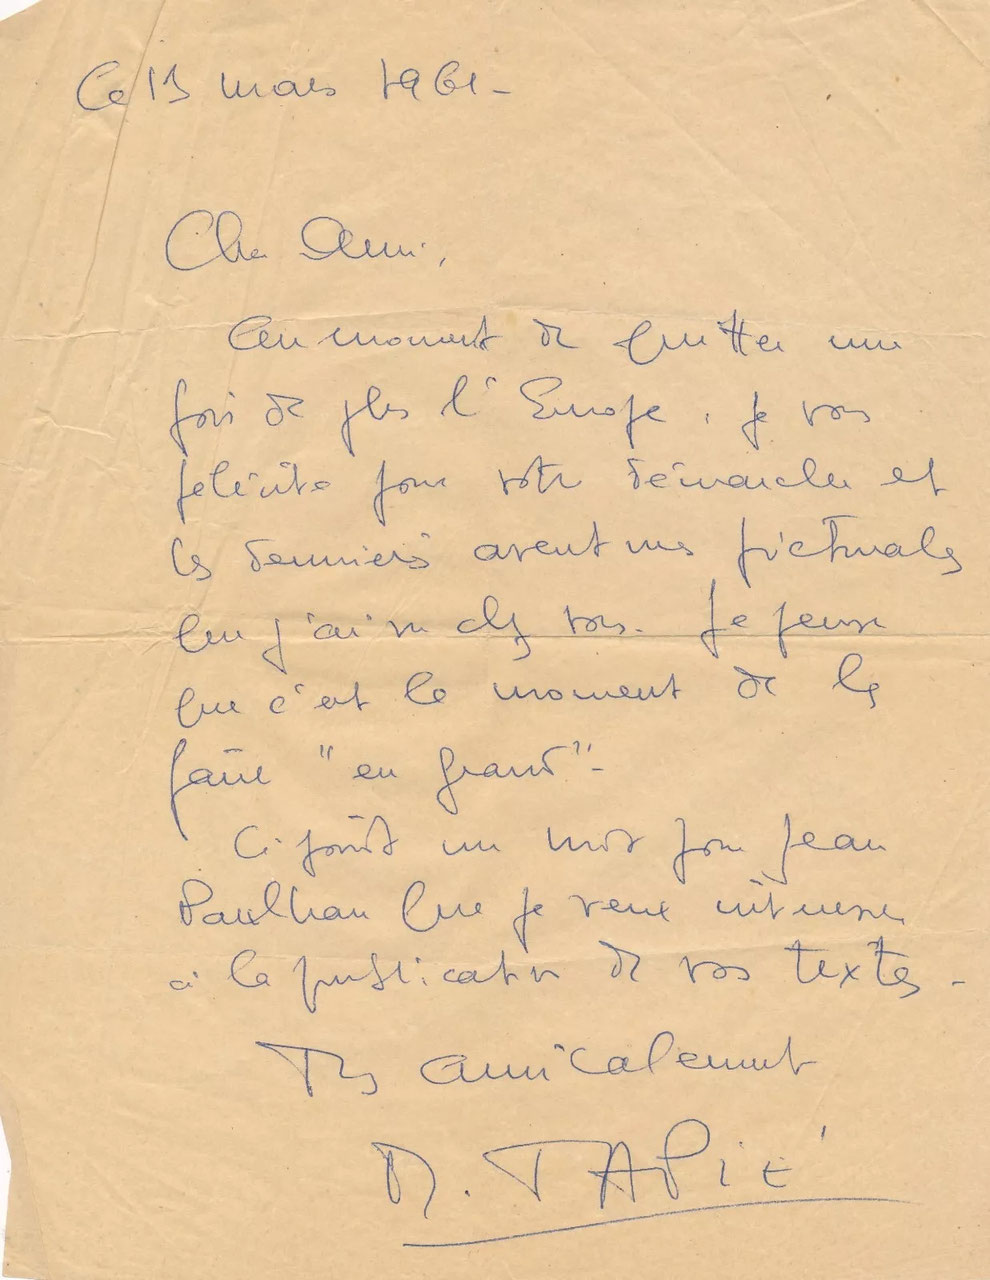 Ce 13 mars 1961 -
Cher Ami,
Au moment de quitter une
fois de plus l'Europe, je vous
félicite pour votre démarche et
les dernières aventures picturales
que j'ai vu chez vous. Je pense
que c'est le moment de les
faire "en grand" -
Ci joint un mot pour Jean
Paulhan que je veux intéresser
à la publication de vos textes -
Très amicalement
M. TAPIÉ